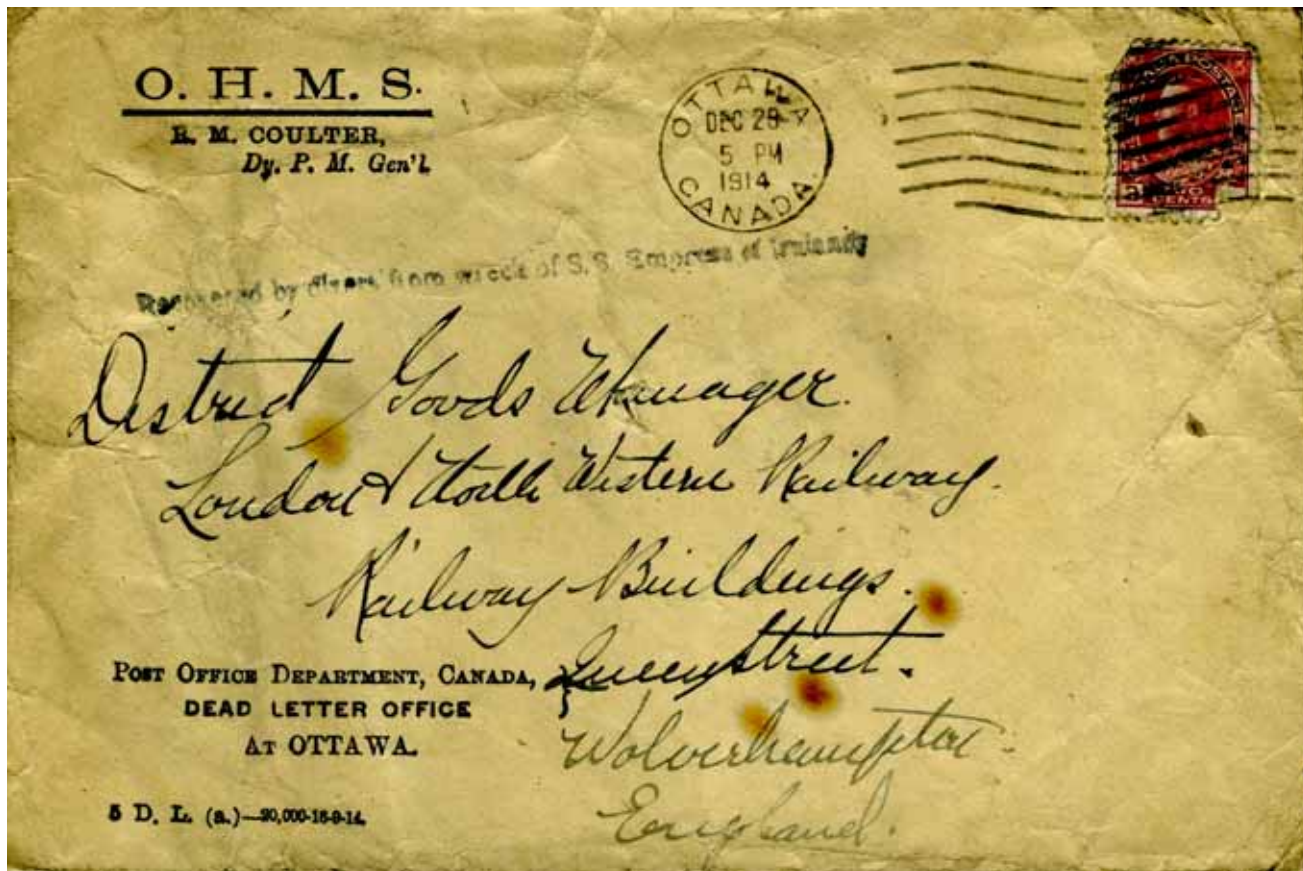 O. H. M. S.
R. M. COULTER,
Dy. P. M. Gen'l.
OTTAWA
DEC 29
5 PM
1914
CANADA.
CANADA POSTAGE
2 TWO
CENTS
Recovered by divers from wreck of S.S. Empress of Ireland
District Goods Manager.
London & North Western Railway.
Railway Buildings.
Queen Street.
Wolverhampton.
England.
POST OFFICE DEPARTMENT, CANADA,
DEAD LETTER OFFICE
AT OTTAWA.
5 D. L. (a.)—20,000-16-9-14.